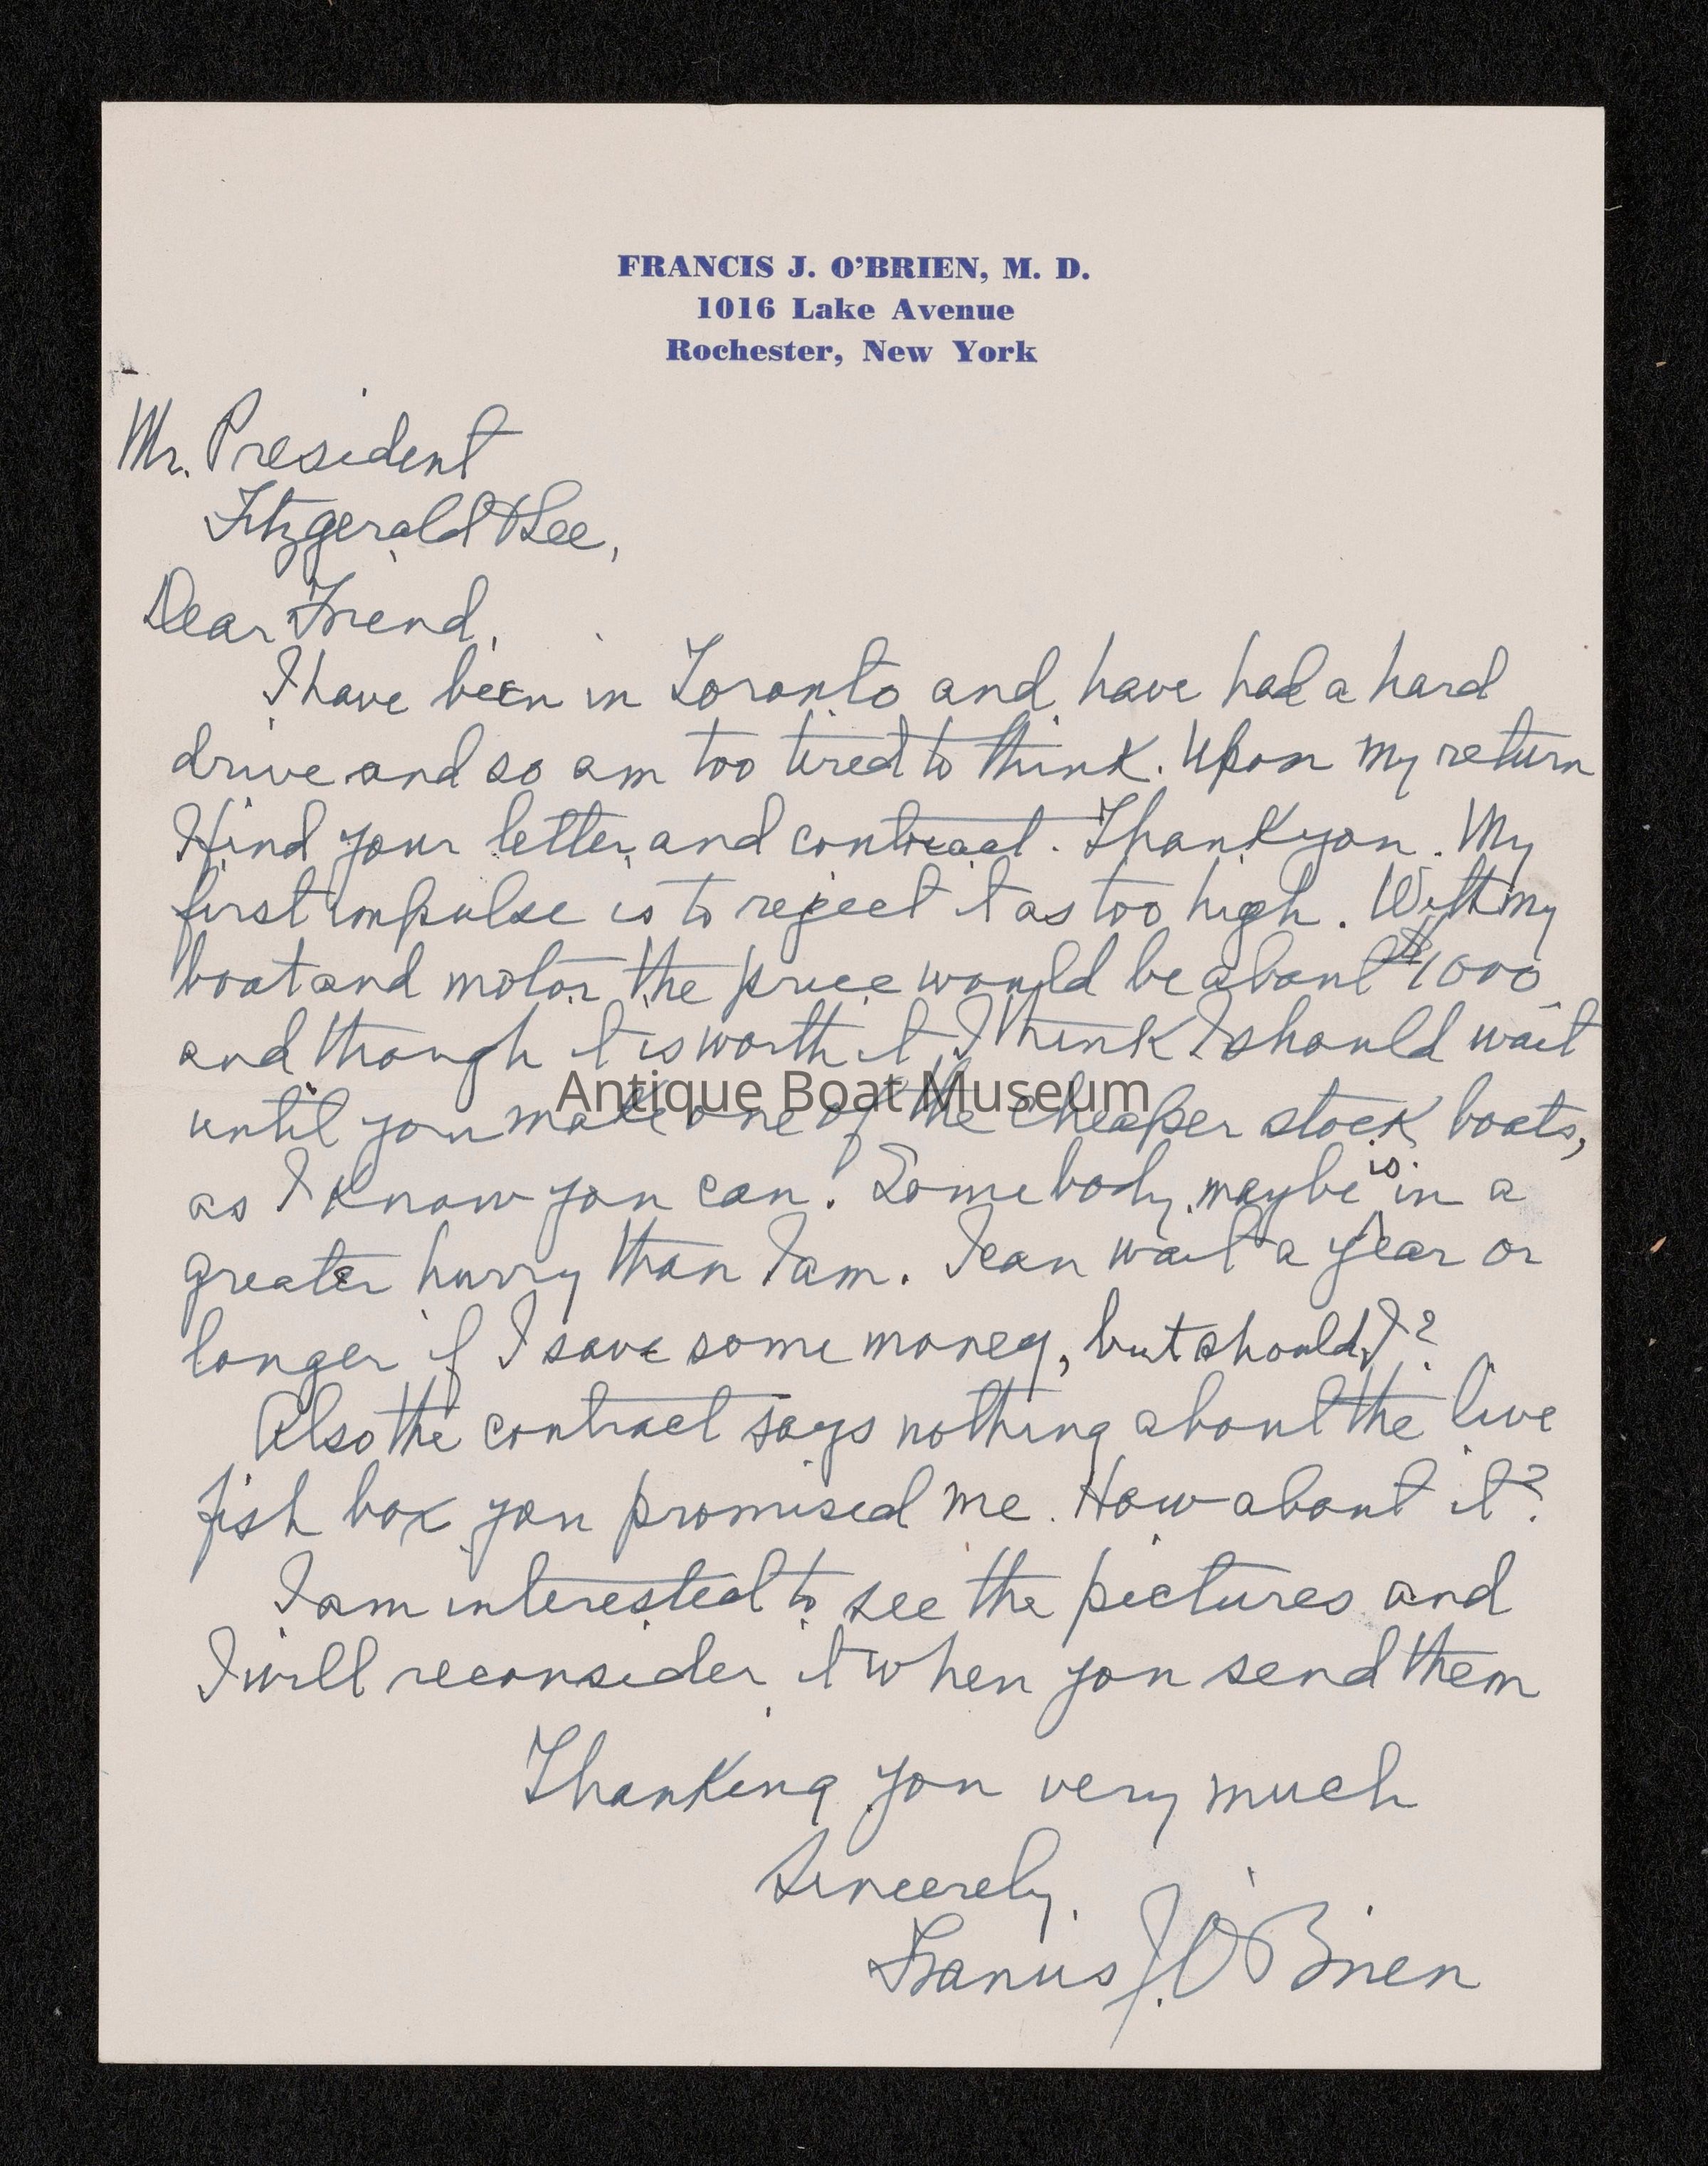 FRANCIS J. O'BRIEN, M. D.
1016 Lake Avenue
Rochester, New York
Mr. President
Fitzgerald & Lee,
Dear Friend,
I have been in Toronto and have had a hard
drive and so am too tired to think. Upon my return
I find your letter and contract. Thank you. My
first impulse is to reject it as too high. With my
boat and motor the price would be about $1000
and though it is worth it I think I should wait
until you make one of the cheaper stock boats,
Antique Boat Museum
as I know you can. Somebody maybe is in a
greater hurry than I am. I can wait a year or
longer if I save some money, but should I?
Also the contract says nothing about the live
fish box you promised me. How about it?
I am interested to see the pictures and
I will reconsider it when you send them
Thanking you very much
Sincerely,
Francis J. O'Brien